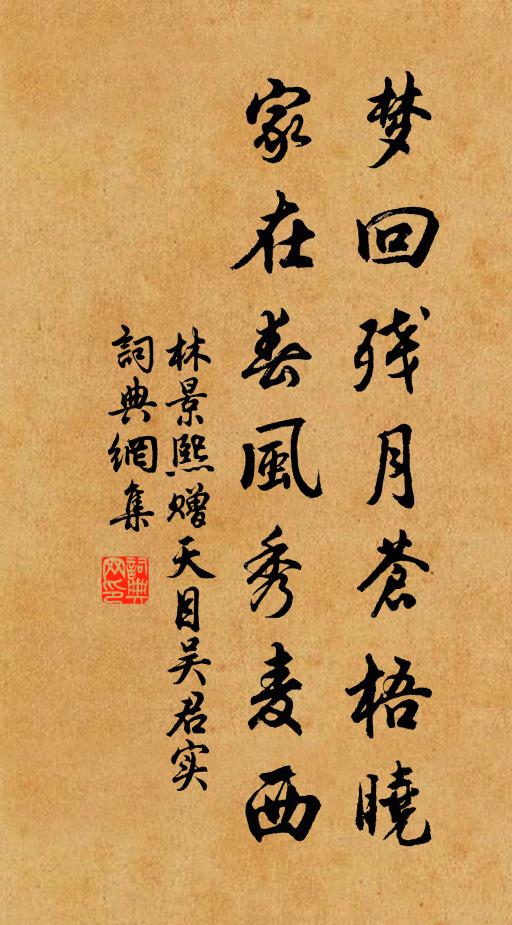 梦回残月苍梧曉
家在春風秀麦西
林景熙赠天目吴君实
詞典網集
詞典网印